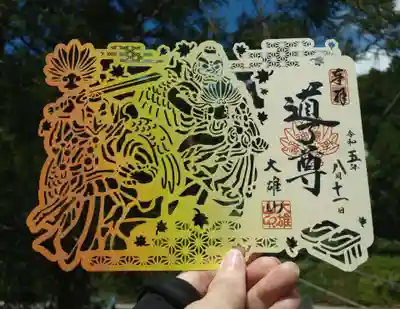 奉拝
道了尊
令和五年
八月十一日
大雄山